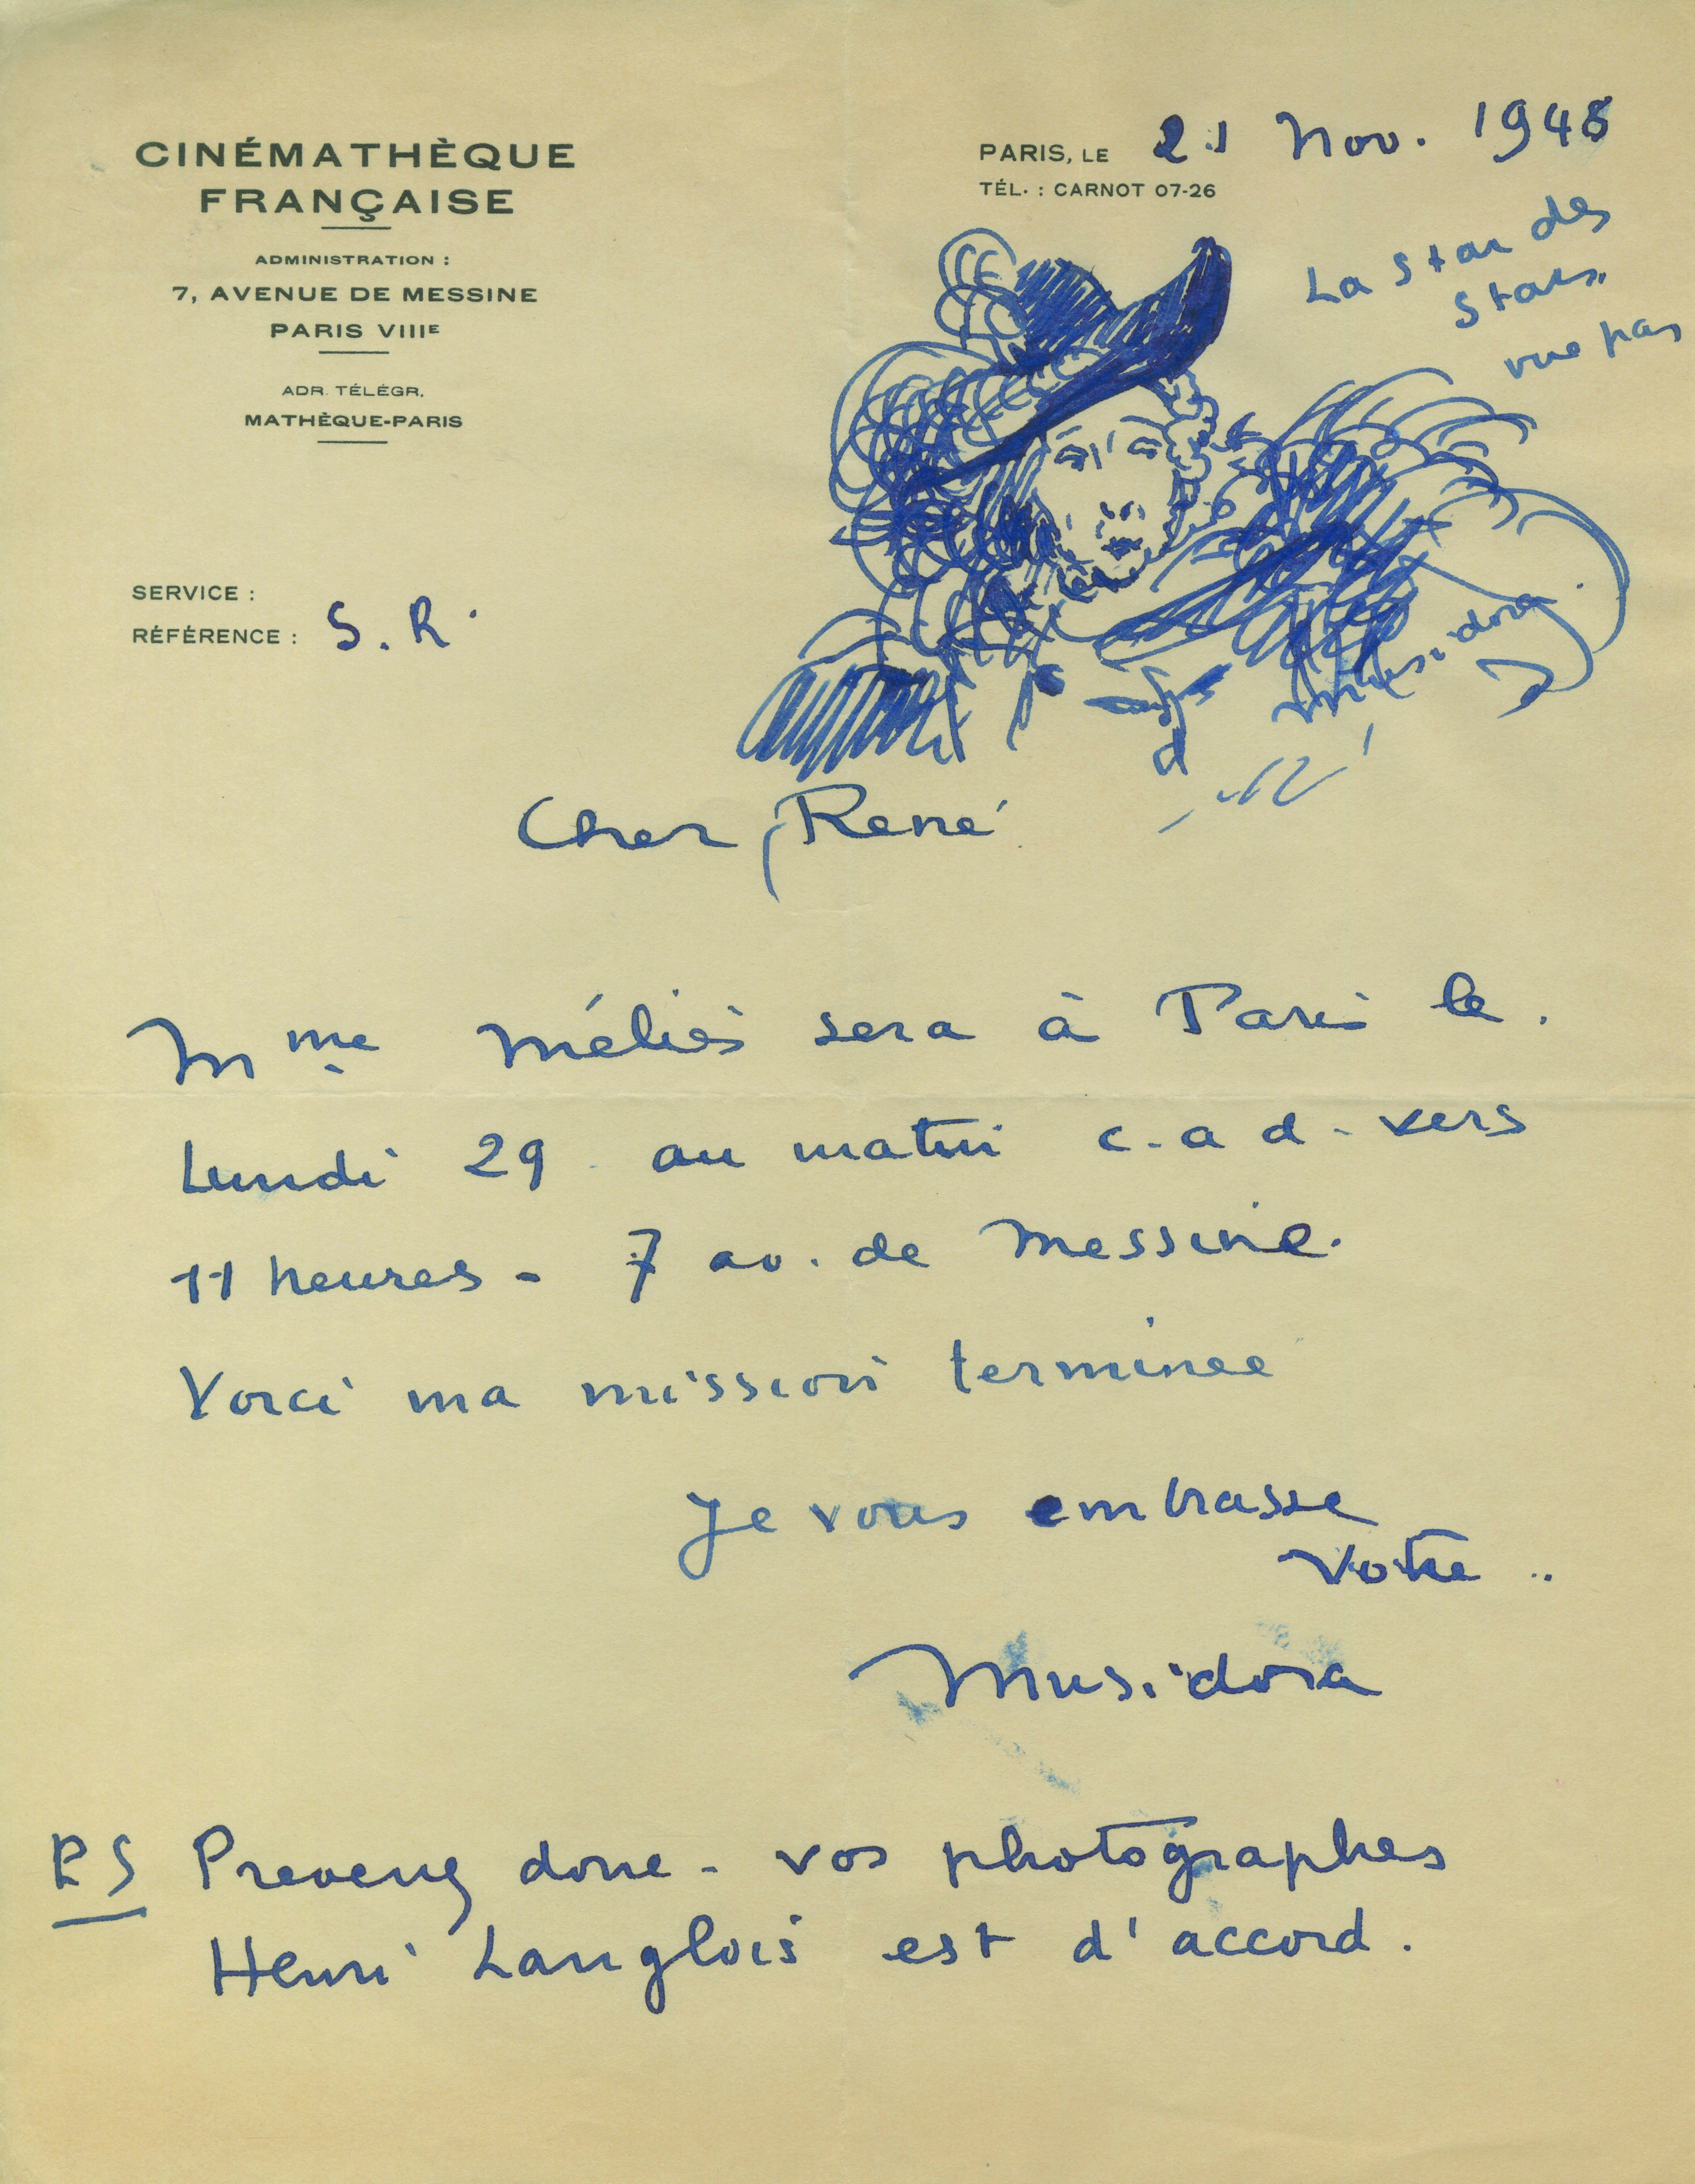 CINÉMATHÈQUE
FRANÇAISE
ADMINISTRATION :
7, AVENUE DE MESSINE
PARIS VIIIE
ADR. TÉLÉGR.
MATHÈQUE-PARIS
PARIS, LE 21 Nov. 1948
TÉL. : CARNOT 07-26
La Star des
Stars.
vue par
Musidora
SERVICE :
RÉFÉRENCE : S. R.
Cher René
Mme Méliès sera à Paris le.
Lundi 29 au matin c.a d. vers
11 heures - 7 av. de Messine.
Voici ma mission terminee
Je vous embrasse
Votre ..
Musidora
PS Prevenez donc - vos photographes
Henri Langlois est d'accord.